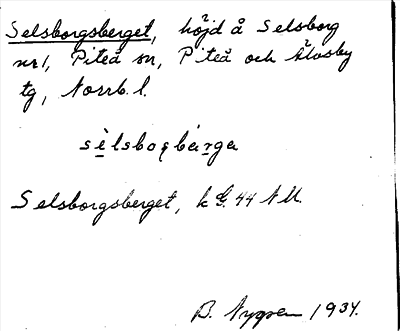 Selsborgsberget, höjd å Selsborg
nr 1, Piteå sn, Piteå och Älvsby
tg, Norrb. l.
Selsborgsberget, k 44 NU.
B. Nygren 1934.